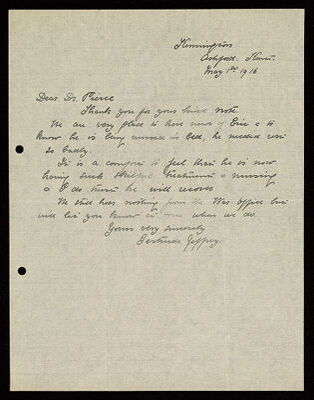 Kennington
Ashford. Kent.
May 1st 1916
Dear Dr. Pierce
Thank you for your kind note
We are very glad to have news of Eric & to
know he is being nursed in bed, he needed rest
so badly.
It is a comfort to feel that he is now
having such helpful treatment & nursing
& I do trust he will recover
We still hear nothing from the War Office but
will let you know at once when we do.
Yours very sincerely
Gertrude Jeffrey.